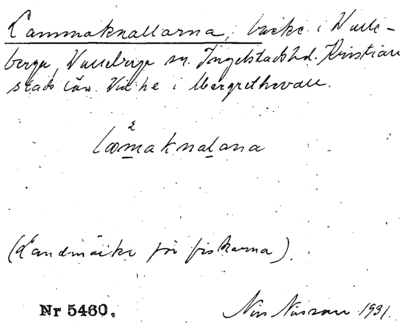 Lammaknallarna, backe i Valle-
berga, Valleberga sn. Ingelstads hd. Kristian
stads län. Vid he i Margrethevall.
2
lamaknalana
(Landmärke för fiskarna).
Nr 5460. Nils Nilsson 1931.